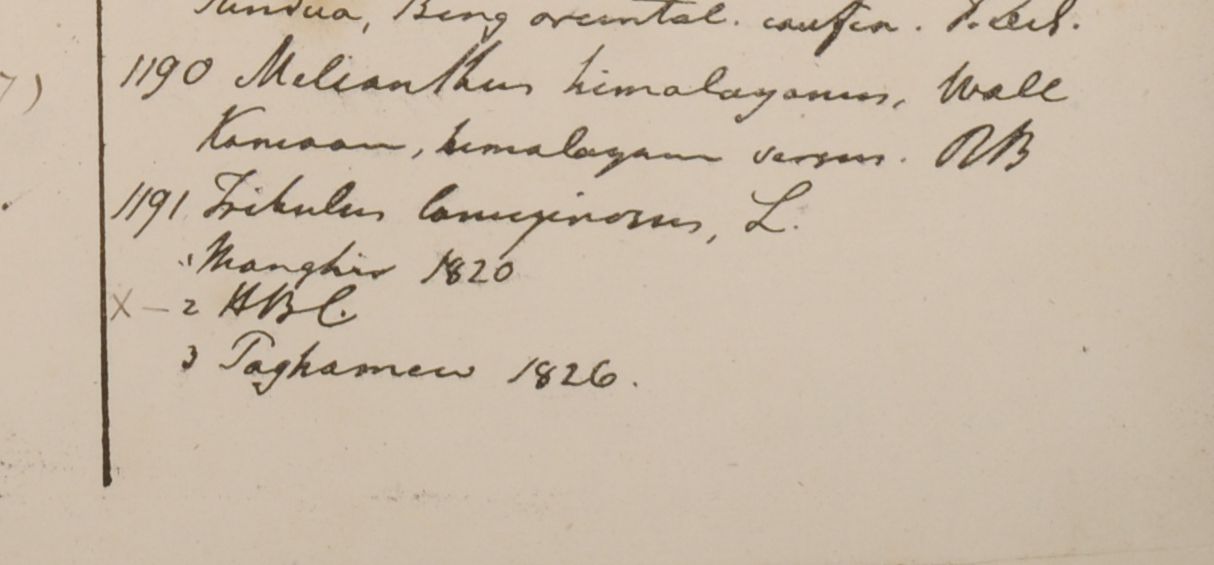 7)
Pundua, Beng oriental. confin.
1190 Melianthus himalayanus, Wall
Kamaon, himalayam versus. RB
1191 Tribulus lanuginosus, L.
1 Monghir 1820
X – 2 HBC.
3 Taghamew 1826.